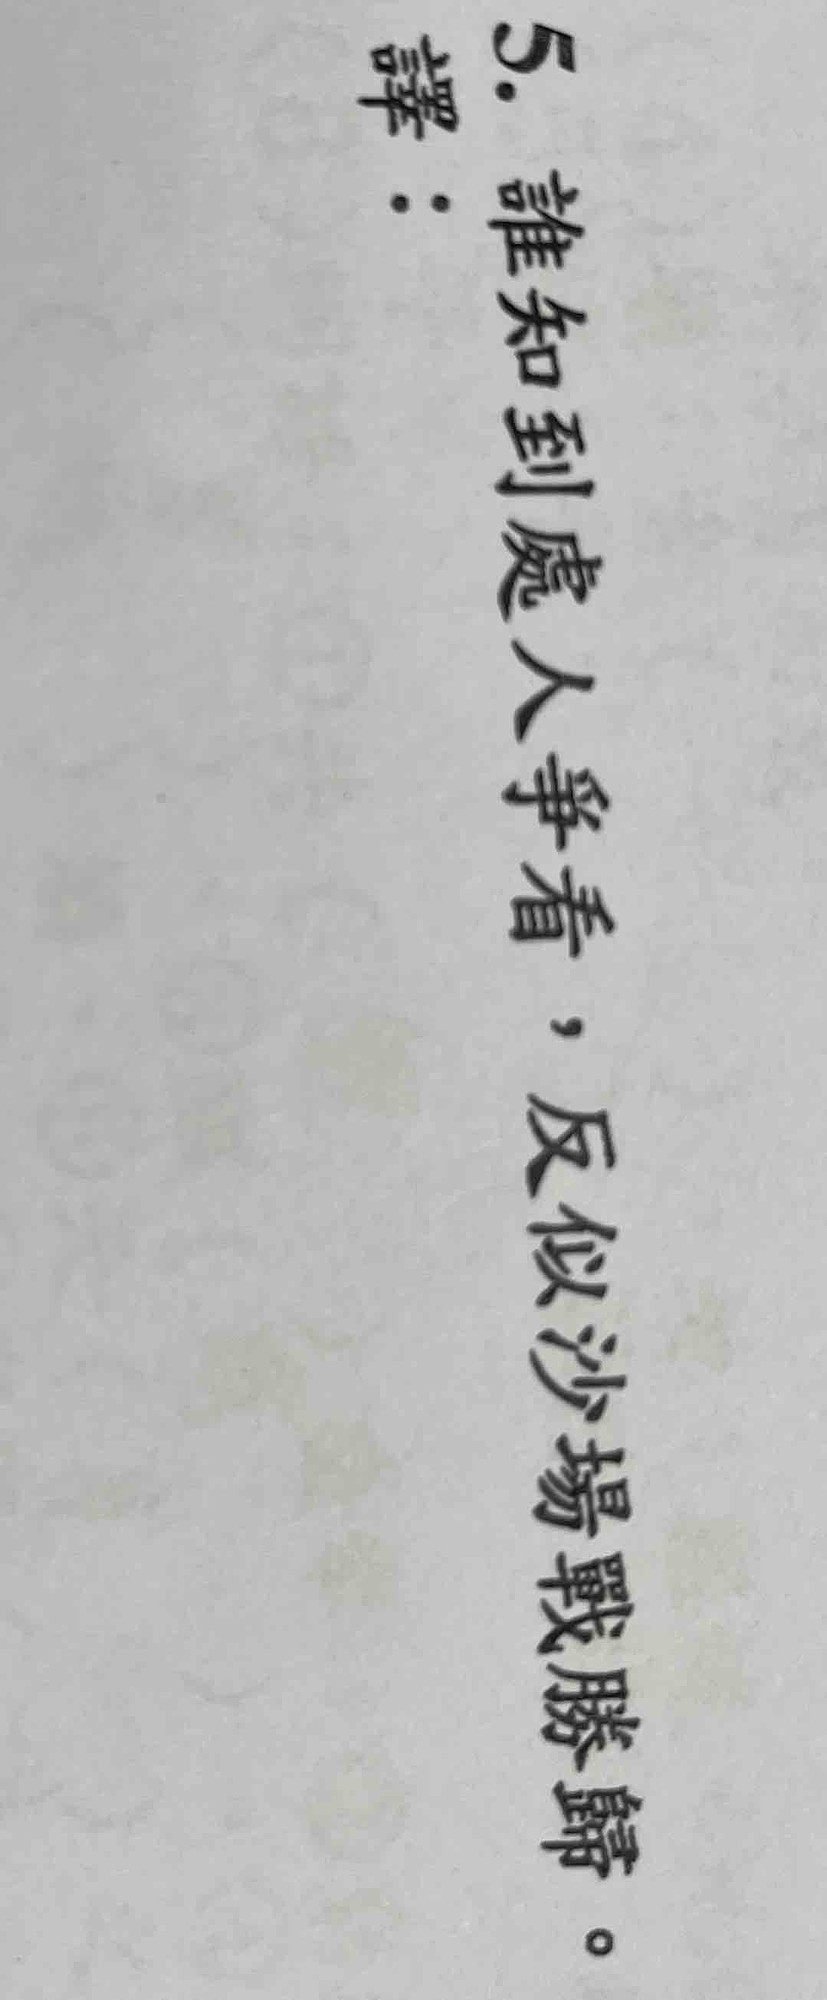 5. 誰知到處人爭看，反似沙場戰勝歸。
譯：